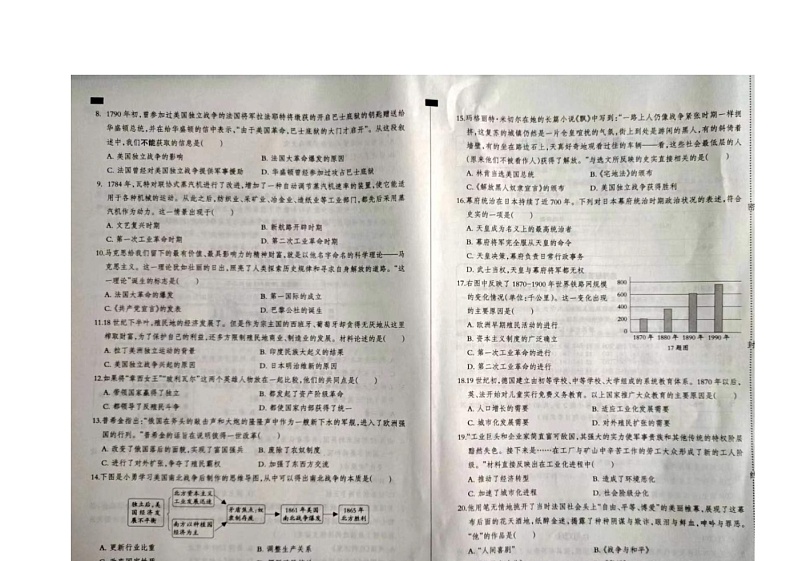 8. 1790年初,曾参加过美国独立战争的法国将军拉法耶特将缴获的开启巴士底狱的钥匙赠送给
华盛顿总统,并在给华盛顿的信中表示,“由于美国革命,巴士底狱的大门才启开”。从这段叙
述中,我们不能获取的信息是( )
A. 美国独立战争的影响 B. 法国大革命爆发的原因
C. 法国曾经对美国独立战争提供军事援助 D. 华盛顿曾经参加过攻占巴士底狱
9. 1784年,瓦特对联协式蒸汽机进行了改进,增加了一种自动调节蒸汽机速率的装置,使它能适
用于各种机械的运动。从此之后,纺织业、采矿业、冶金业、造纸业等工业部门,都先后采用蒸
汽机作为动力。这一情景出现于( )
A. 文艺复兴时期 B. 新航路开辟时期
C. 第一次工业革命时期 D. 第二次工业革命时期
10. 马克思给我们留下的最有价值、最具影响力的精神财富,就是以他名字命名的科学理论——马
克思主义。这一理论犹如壮丽的日出,照亮了人类探索历史规律和寻求自身解放的道路。“这
一理论”诞生的标志是( )
A. 法国大革命的爆发 B. 第一国际的成立
C. 《共产党宣言》的发表 D. 巴黎公社的诞生
11. 18世纪下半叶,殖民地的经济发展了。但是作为宗主国的西班牙、葡萄牙却贪得无厌地从这里
榨取财富,为了保护自己的利益,还多方限制殖民地商业、制造业的发展。材料论述的是( )
A. 拉丁美洲独立运动的背景 B. 印度民族大起义的结果
C. 美国独立战争兴起的原因 D. 日本明治维新的影响
12. 如果将“章西女王”“玻利瓦尔”这两个英雄人物放在一起比较,他们的共同点是( )
A. 带领国家赢得了独立 B. 都发起了资产阶级革命
C. 都领导了反殖民斗争 D. 都使国家内部获得了统一
13. 普希金指出:“俄国在斧头的敲击声和大炮的轰隆声中作为一艘新下水的军舰,进入了欧洲强
国的行列。”普希金的话旨在说明彼得一世改革( )
A. 改变了俄国落后的面貌,实现了富国强兵 B. 废除了农奴制度
C. 进行了对外扩张,争夺了殖民霸权 D. 加强了东西方交流
14. 下图是小勇学习美国南北战争后制作的思维导图,从中可以得出南北战争的本质是( )
独立后,美
国经济发
展不平衡
北方资本主义
工业发展迅速
南方以种植园
经济为主
矛盾焦点:奴
隶制存废
1861年美国
南北战争爆发
1865年
北方胜利
A. 更新行业比重 B. 调整生产关系
15. 玛格丽特·米切尔在她的长篇小说《飘》中写到:“一路上人仍像战争紧张时期一样拥
挤,这复苏的城镇仍然是一片仓皇喧扰的气氛,街上到处是游闲的黑人,有的斜倚着
墙壁,有的坐在路边石上,天真好奇地观看过往的车辆——看,这些社会最低层的人
(原来他们不被看作人)获得了解放。”与选文所反映的史实直接相关的是( )
A. 林肯当选美国总统 B. 《宅地法》的颁布
C. 《解放黑人奴隶宣言》的颁布 D. 美国独立战争获得胜利
16. 幕府统治在日本持续了近700年。下列对日本幕府统治时期政治状况的表述,符合
史实的一项是( )
A. 天皇成为名义上的最高统治者
B. 幕府将军完全服从天皇的命令
C. 天皇决策,幕府负责日常行政事务
D. 武士当权,天皇与幕府将军都无权
17. 右图中反映了1870-1900年世界铁路网规模
的变化情况(单位:千公里)。这一变化出现
的主要原因是( )
A. 欧洲早期殖民活动的进行
B. 资本主义制度的广泛建立
C. 第一次工业革命的进行
D. 第二次工业革命的进行
800
600
400
200
0
1870年 1880年 1890年 1990年
17题图
18. 19世纪初,德国建立由初等学校、中等学校、大学组成的系统教育体系。1870年以后,
英、法开始对儿童实行免费义务教育。以上国家推广大众教育的主要目的是( )
A. 人口增长的需要 B. 适应工业化发展需要
C. 城市化发展需要 D. 对外殖民扩张的需要
19. “工业巨头和企业家简直富可敌国,其强大的实力使军事贵族和其他传统的特权阶层
黯然失色。接下来是……在工厂与矿山中辛苦工作的劳工大众形成了新的工人阶
级。”材料直接反映出在工业化进程中( )
A. 推动了经济转型 B. 造成了环境恶化
C. 加速了城市化进程 D. 社会阶级分化
20. 他用笔无情地掀开了当时法国社会头上“自由、平等、博爱”的美丽帷幕,展现了这幕
布后面的花天酒地、纸醉金迷,揭露了种种阴谋与欺诈、眼泪与鲜血、呻吟与恶罪。
“他”的作品是( )
A. “人间喜剧” B. 《战争与和平》
密
封